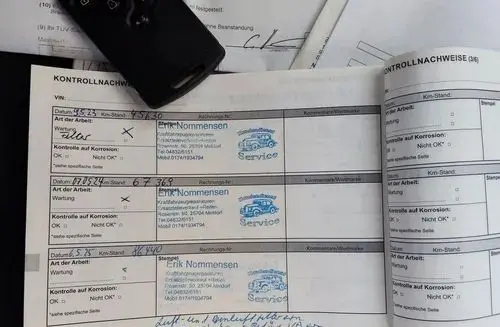 festgestellt.
(9) Ihr TÜV
ne Beanstandung
KONTROLLNACHWEISE
VIN:
Datum: 9.5.23 Km-Stand: 45630 Rechnungs-Nr. Kommentare/Werkmarke
Art der Arbeit: Stempel
Wartung X
Filter
Kontrolle auf Korrosion:
OK □ Nicht OK* □
*siehe spezifische Seite
Erik Nommensen
Kraftfahrzeugreparaturen
Ersatzteileverkauf + Reifen
Rosenstr. 50, 25704 Meldorf
Tel. 04832/6151
Mobil 0174/1934794
Service
Datum: 07.05.24 Km-Stand: 67369 Rechnungs-Nr. Kommentare/Werkmarke
Art der Arbeit: Stempel
Wartung X
Kontrolle auf Korrosion:
OK □ Nicht OK* □
*siehe spezifische Seite
Erik Nommensen
Kraftfahrzeugreparaturen
Ersatzteileverkauf + Reifen
Rosenstr. 50, 25704 Meldorf
Tel. 04832/6151
Mobil 0174/1934794
Service
Datum: 6.5.25 Km-Stand: Rechnungs-Nr. Kommentare/Werkmarke
Art der Arbeit: Stempel
Wartung
Kontrolle auf Korrosion:
OK □ Nicht OK* □
*siehe spezifische Seite
Erik Nommensen
Kraftfahrzeugreparaturen
Ersatzteileverkauf + Reifen
Rosenstr. 50, 25704 Meldorf
Tel. 04832/6151
Mobil 0174/1934794
Service
Luft- und
ONTROLLNACHWEISE (3/6)
Datum: Km-Stand:
Art der Arbeit:
Wartung □
Kontrolle auf Korrosion:
OK □ Nicht OK* □
*siehe spezifische Seite
Datum: Km-Stand:
Art der Arbeit:
Wartung
Kontrolle auf Korrosion:
OK □ Nicht OK* □
*siehe spezifische Seite
Datum: Km-Stand:
Art der Arbeit:
Wartung
Kontrolle auf Korrosion:
OK □ Nicht OK* □
*siehe spezifische Seite